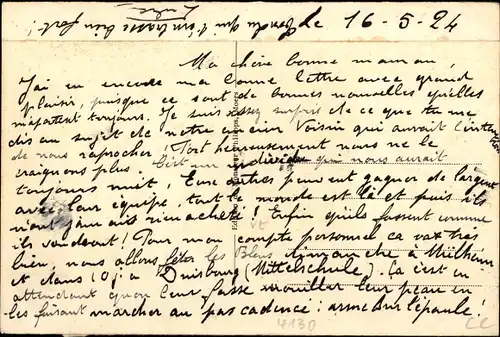 Le 16-5-24
Ma chère bonne maman,
J'ai eu encore ma bonne lettre avec grand
plaisir, puisque ce sont de bonnes nouvelles qu'elles
m'apportent toujours. Je suis assez surpris de ce que tu me
dis au sujet de notre ancien voisin qui aurait l'intention
de nous raprocher! Fort heureusement nous ne le
craignons plus. C'est un individu qui nous aurait
toujours nuit, Eux autres peuvent gagner de l'argent
avec leur équipe, tout le monde est là et puis ils
n'ont jamais rien acheté! Enfin qu'ils fassent comme
ils voudront! Pour mon compte personnel ça va très
bien, nous allons fêter les Bleus dimanche à Mülheim
et dans 10 j. à Duisbourg (Mittelschule). Ça c'est en
attendant qu'on leur fasse mouiller leur peau en
les faisant marcher au pas cadencé: arme sur l'épaule!
qui t'embrasse bien fort!
4130